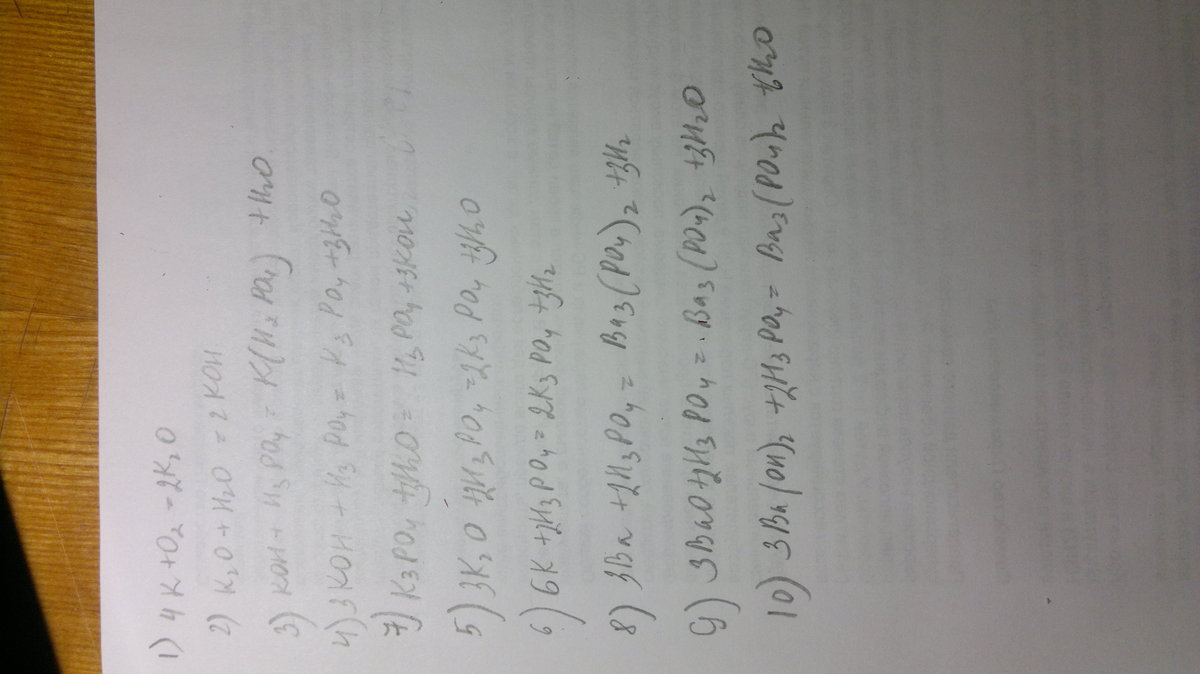 1) 4K + O2 = 2K2O
2) K2O + H2O = 2KOH
3) KOH + H3PO4 = K(H2PO4) + H2O
4) 3KOH + H3PO4 = K3PO4 + 3H2O
7) K3PO4 + 3H2O = H3PO4 + 3KOH
5) 3K2O + 2H3PO4 = 2K3PO4 + 3H2O
6) 6K + 2H3PO4 = 2K3PO4 + 3H2
8) 3Ba + 2H3PO4 = Ba3(PO4)2 + 3H2
9) 3BaO + 2H3PO4 = Ba3(PO4)2 + 3H2O
10) 3Ba(OH)2 + 2H3PO4 = Ba3(PO4)2 + 6H2O